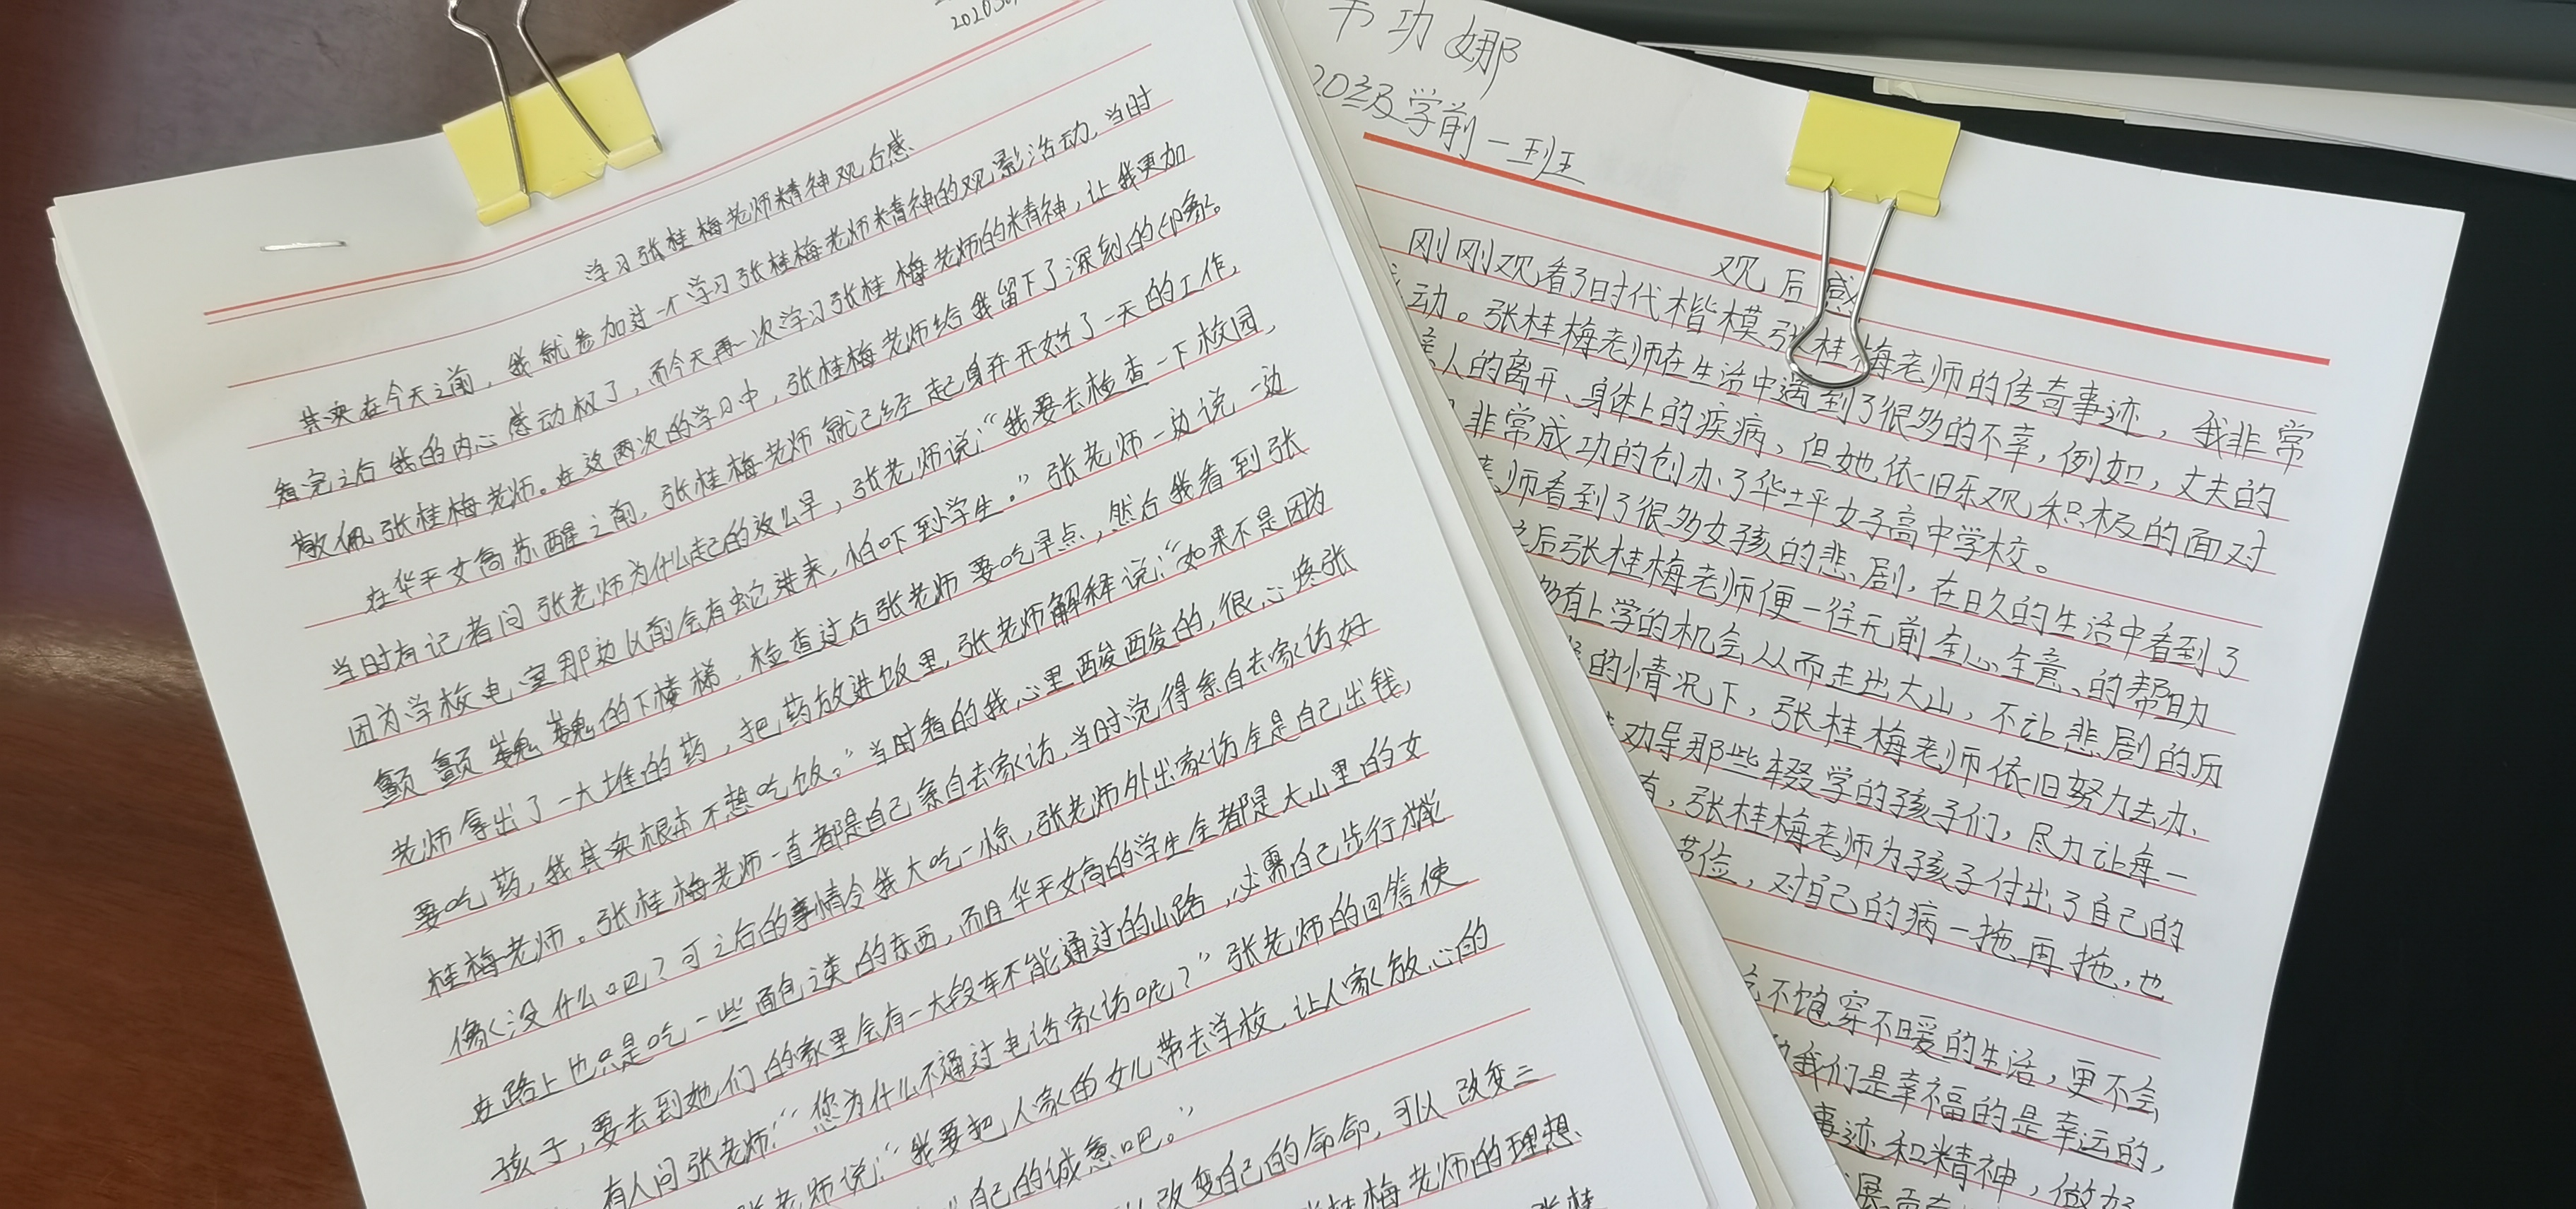 学习张桂梅老师精神观后感
其实在今天之前，我就参加过一个学习张桂梅老师精神的观影活动，当时
看完之后我的内心感动极了，而今天再一次学习张桂梅老师的精神，让我更加
敬佩张桂梅老师。在这两次的学习中，张桂梅老师给我留下了深刻的印象。
在华平女高苏醒之前，张桂梅老师就已经起身并开始了一天的工作，
当时有记者问张老师为什么起的这么早，张老师说：“我要去检查一下校园，
因为学校电室那边以前会有蛇进来，怕吓到学生。”张老师一边说一边
颤颤巍巍的下楼梯，检查过后张老师要吃早点，然后我看到张
老师拿出了一大堆的药，把药放进饭里，张老师解释说：“如果不是因为
要吃药，我其实根本不想吃饭。”当时看的我心里酸酸的，很心疼张
桂梅老师。张桂梅老师一直都是自己亲自去家访，当时说得亲自去家访好
像没什么吧？可之后的事情令我大吃一惊，张老师外出家访全是自己出钱，
在路上也只是吃一些面包之类的东西，而且华平女高的学生全都是大山里的女
孩子，要去到她们的家里会有一大段车不能通过的山路，必需自己步行才能
有人问张老师：“您为什么不通过电话家访呢？”张老师的回答使
张老师说：“我要把人家的女儿带去学校，让人家放心的
自己的诚意吧。”
改变自己的命命，可以改变三
张桂梅老师的理想
张桂
功娜
20级学前一班
观后感
刚刚观看了时代楷模张桂梅老师的传奇事迹，我非常
动。张桂梅老师在生活中遇到了很多的不幸，例如，丈夫的
人的离开、身体上的疾病，但她依旧乐观积极的面对
非常成功的创办了华坪女子高中学校。
师看到了很多女孩的悲剧，在日久的生活中看到了
之后张桂梅老师便一往无前全心全意的帮助
有上学的机会从而走出大山，不让悲剧的历
的情况下，张桂梅老师依旧努力去办、
劝导那些辍学的孩子们，尽力让每一
有，张桂梅老师为孩子付出了自己的
节俭，对自己的病一拖再拖，也
不饱穿不暖的生活，更不会
我们是幸福的是幸运的，
事迹和精神，做好
展